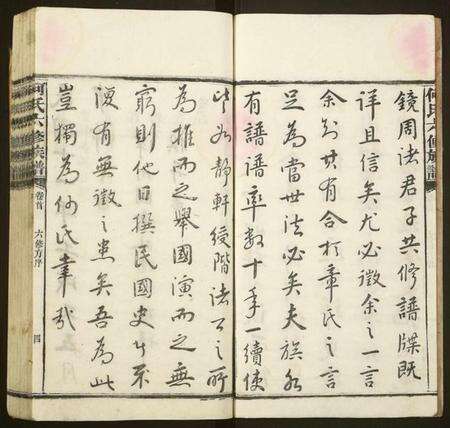 何氏六修族譜
鏡周法君子共修譜牒既
詳且信矣尤必徵余之一言
余知其有合於章氏之言
足為當世法必矣夫族必
有譜譜率數十年一續使
皆如靜軒綬階法周之所
為推而之舉國演而之無
窮則他日撰民國史者不
復有無徵之患矣吾為此
豈獨為何氏幸哉
何氏六修族譜
卷首
六修方序
四